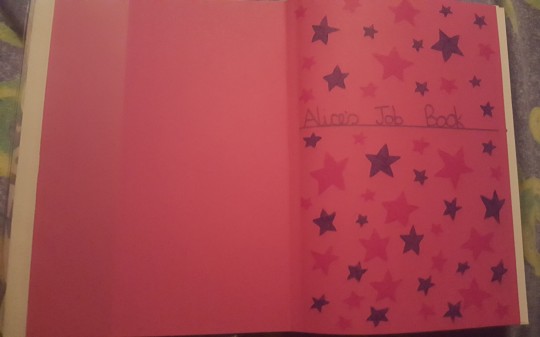 Alice's Job Book